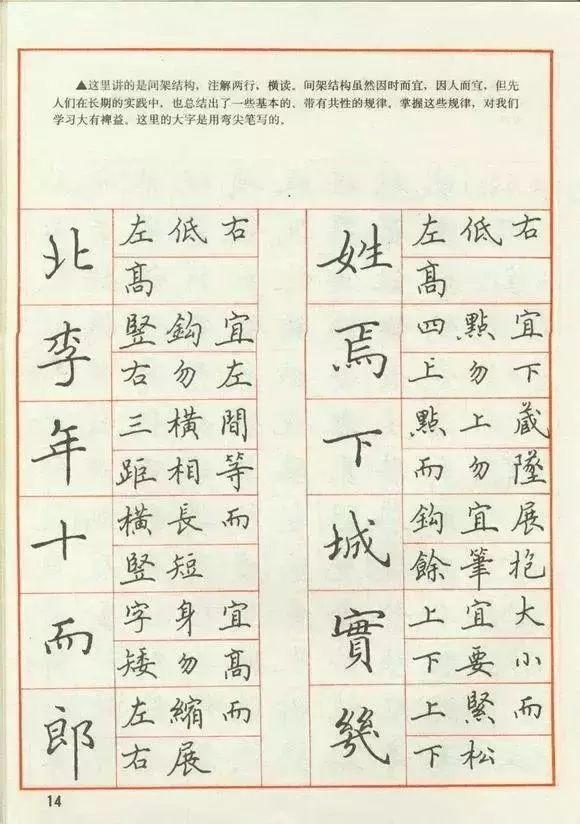 ▲这里讲的是间架结构，注解两行，横读。间架结构虽然因时而宜，因人而宜，但先
人们在长期的实践中，也总结出了一些基本的、带有共性的规律。掌握这些规律，对我们
学习大有裨益。这里的大字是用弯尖笔写的。
北
左低右
高
李
竖鈎宜
右勿左
年
三橫間
距相等
十
橫長而
竪短
而
字身宜
矮勿高
郎
左縮而
右展
姓
左低右
高
焉
四點宜
上勿下
下
點上藏
而勿墜
城
鈎宜展
餘筆抱
實
上宜大
下要小
幾
上緊而
下松
14